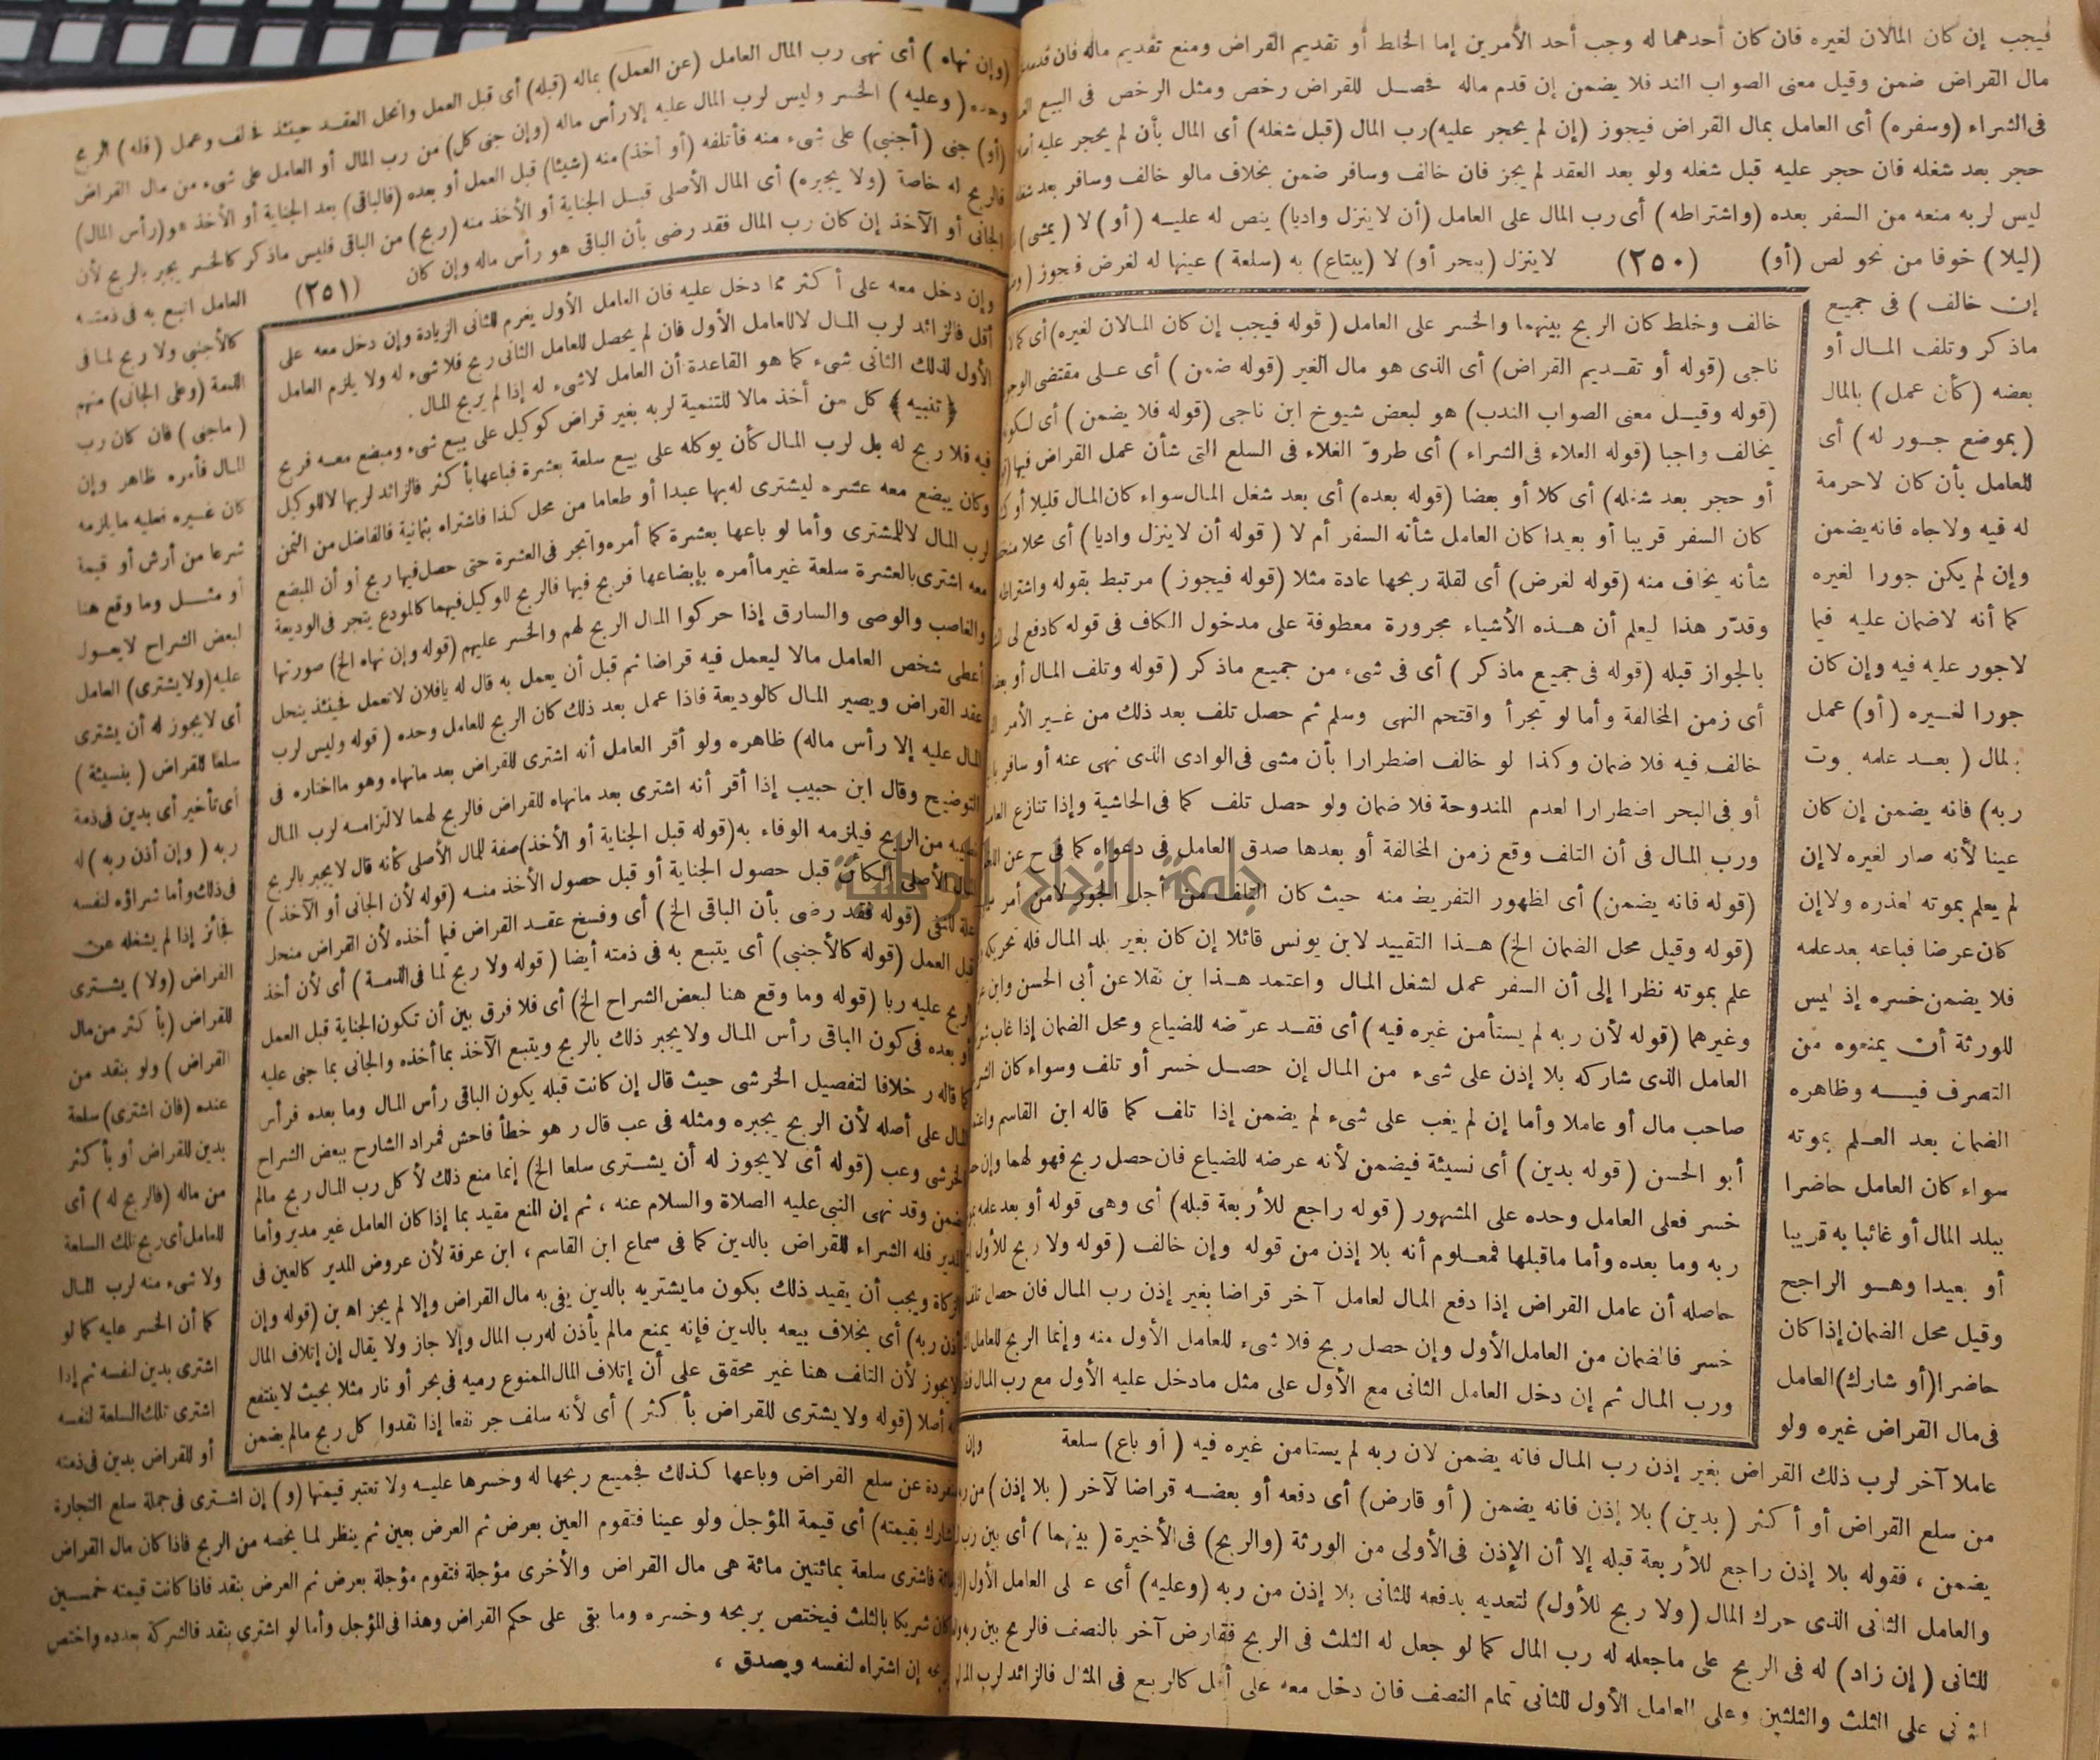 فيجب إن كان المالان لغيره فان كان أحدهما له وجب أحد الأمرين إما الخلط أو تقديم القراض ومنع تقديم ماله فان قدمه
مال القراض ضمن وقيل معنى الصواب الند فلا يضمن إن قدم ماله فحصل للقراض رخص ومثل الرخص فى البيع
فى الشراء (وسفره) أى العامل بمال القراض فيجوز (إن لم يحجر عليه) رب المال (قبل شغله) أى المال بأن لم يحجر عليه أصلا
حجر بعد شغله فان حجر عليه قبل شغله ولو بعد العقد لم يجز فان خالف وسافر ضمن بخلاف مالو خالف وسافر بعد شغله
ليس لربه منعه من السفر بعده (واشتراطه) أى رب المال على العامل (أن لا ينزل واديا) ينص له عليه (أو) لا (يمشى)
(ليلا) خوفا من نحو لص (أو) (٢٥٠) لا ينزل (ببحر أو) لا (يبتاع) به (سلعة) عينها له لغرض فيجوز
إن خالف) فى جميع
ماذكر وتلف المال أو
بعضه (كأن عمل) بالمال
(بموضع جور له) أى
للعامل بأن كان لاحرمة
له فيه ولاجاه فانه يضمن
وإن لم يكن جورا لغيره
كما أنه لاضمان عليه فيما
لاجور عليه فيه وإن كان
جورا لغيره (أو) عمل
بالمال (بعد علمه بموت
ربه) فانه يضمن إن كان
عينا لأنه صار لغيره لا إن
لم يعلم بموته لعذره ولا إن
كان عرضا فباعه بعد علمه
فلا يضمن خسره إذ ليس
للورثة أن يمنعوه من
التصرف فيه وظاهره
الضمان بعد العلم بموته
سواء كان العامل حاضرا
ببلد المال أو غائبا به قريبا
أو بعيدا وهو الراجح
وقيل محل الضمان إذا كان
حاضرا (أو شارك) العامل
فى مال القراض غيره ولو
خالف وخلط كان الربح بينهما والخسر على العامل (قوله فيجب إن كان المالان لغيره) أى
ناجى (قوله أو تقديم القراض) أى الذى هو مال الغير (قوله ضمن) أى على مقتضى
(قوله وقيل معنى الصواب الندب) هو لبعض شيوخ ابن ناجى (قوله فلا يضمن) أى
يخالف واجبا (قوله الغلاء فى الشراء) أى طروّ الغلاء فى السلع التى شأن عمل القراض فيها
أو حجر بعد شغله) أى كلا أو بعضا (قوله بعده) أى بعد شغل المال سواء كان المال قليلا أو
كان السفر قريبا أو بعيدا كان العامل شأنه السفر أم لا (قوله أن لا ينزل واديا) أى محلا
شأنه يخاف منه (قوله لغرض) أى لقلة ربحها عادة مثلا (قوله فيجوز) مرتبط بقوله واشتراطه
وقدّر هذا ليعلم أن هذه الأشياء مجرورة معطوفة على مدخول الكاف فى قوله كادفع لى
بالجواز قبله (قوله فى جميع ماذكر) أى فى شىء من جميع ماذكر (قوله وتلف المال أو
أى زمن المخالفة وأما لو تجرأ واقتحم النهى وسلم ثم حصل تلف بعد ذلك من غير الأمر
خالف فيه فلا ضمان وكذا لو خالف اضطرارا بأن مشى فى الوادى الذى نهى عنه أو سافر
أو فى البحر اضطرارا لعدم المندوحة فلا ضمان ولو حصل تلف كما فى الحاشية وإذا تنازع
ورب المال فى أن التلف وقع زمن المخالفة أو بعدها صدق العامل فى دعواه كما فى ح عن
(قوله فانه يضمن) أى لظهور التفريط منه حيث كان التلف من أجل الجور لا من أمر
(قوله وقيل محل الضمان الخ) هذا التقييد لابن يونس قائلا إن كان بغير بلد المال فله
علم بموته نظرا إلى أن السفر عمل لشغل المال واعتمد هذا بن نقلا عن أبى الحسن وابن
وغيرهما (قوله لأن ربه لم يستأمن غيره فيه) أى فقد عرّضه للضياع ومحل الضمان إذا غاب
العامل الذى شاركه بلا إذن على شىء من المال إن حصل خسر أو تلف وسواء كان
صاحب مال أو عاملا وأما إن لم يغب على شىء لم يضمن إذا تلف كما قاله ابن القاسم
أبو الحسن (قوله بدين) أى نسيئة فيضمن لأنه عرضه للضياع فان حصل ربح فهو لهما وإن
خسر فعلى العامل وحده على المشهور (قوله راجع للأربعة قبله) أى وهى قوله أو بعد علمه
ربه وما بعده وأما ماقبلها فمعلوم أنه بلا إذن من قوله وإن خالف (قوله ولا ربح للأول
حاصله أن عامل القراض إذا دفع المال لعامل آخر قراضا بغير إذن رب المال فان حصل
خسر فالضمان من العامل الأول وإن حصل ربح فلا شىء للعامل الأول منه وإنما الربح للعامل
ورب المال ثم إن دخل العامل الثانى مع الأول على مثل مادخل عليه الأول مع رب المال
عاملا آخر لرب ذلك القراض بغير إذن رب المال فانه يضمن لأن ربه لم يستامن غيره فيه (أو باع) سلعة وإن
من سلع القراض أو أكثر (بدين) بلا إذن فانه يضمن (أو قارض) أى دفعه أو بعضه قراضا لآخر (بلا إذن)
يضمن ، فقوله بلا إذن راجع للأربعة قبله إلا أن الإذن فى الأولى من الورثة (والربح) فى الأخيرة (بينهما) أى بين رب
والعامل الثانى الذى حرك المال (ولا ربح للأول) لتعديه بدفعه للثانى بلا إذن من ربه (وعليه) أى على العامل الأول
للثانى (إن زاد) له فى الربح على ماجعله له رب المال كما لو جعل له الثلث فى الربح فقارض آخر بالنصف فالربح بين
على الثلث والثلثين وعلى العامل الأول للثانى تمام النصف فان دخل معه على أقل كالربع فى المثال فالزائد لرب المال
(وإن نهاه) أى نهى رب المال العامل (عن العمل) بماله (قبله) أى قبل العمل وانحل العقد حينئذ فخالف وعمل (فله) الربح
وحده (وعليه) الخسر وليس لرب المال عليه إلا رأس ماله (وإن جنى كل) من رب المال أو العامل على شىء من مال القراض
(أو) جنى (أجنبى) على شىء منه فأتلفه (أو أخذ) منه (شيئا) قبل العمل أو بعده (فالباقى) بعد الجناية أو الأخذ هو (رأس المال)
فالربح له خاصة (ولا يجبره) أى المال الأصلى قبل الجناية أو الأخذ منه (ربح) من الباقى فليس ماذكر كالخسر يجبر بالربح لأن
الجانى أو الآخذ إن كان رب المال فقد رضى بأن الباقى هو رأس ماله وإن كان (٢٥١)
العامل اتبع به فى ذمته
كالأجنبى ولا ربح لما فى
الذمة (وعلى الجانى) منهم
(ماجنى) فان كان رب
المال فأمره ظاهر وإن
كان غيره فعليه مايلزمه
شرعا من أرش أو قيمة
أو مثل وما وقع هنا
لبعض الشراح لايعول
عليه (ولا يشترى) العامل
أى لايجوز له أن يشترى
سلعا للقراض (بنسيئة)
أى تأخير أى بدين فى ذمة
ربه (وإن أذن ربه) له
فى ذلك وأما شراؤه لنفسه
فجائز إذا لم يشغله عن
القراض (ولا) يشترى
للقراض (بأكثر من مال
القراض) ولو بنقد من
عنده (فان اشترى) سلعة
بدين للقراض أو بأكثر
من ماله (فالربح له) أى
للعامل أى ربح تلك السلعة
ولا شىء منه لرب المال
كما أن الخسر عليه كما لو
اشترى بدين لنفسه ثم إذا
اشترى تلك السلعة لنفسه
أو للقراض بدين فى ذمته
وإن دخل معه على أكثر مما دخل عليه فان العامل الأول يغرم للثانى الزيادة وإن دخل معه على
أقل فالزائد لرب المال لا للعامل الأول فان لم يحصل للعامل الثانى ربح فلا شىء له ولا يلزم العامل
الأول لذلك الثانى شىء كما هو القاعدة أن العامل لاشىء له إذا لم يربح المال .
﴿تنبيه﴾ كل من أخذ مالا للتنمية لربه بغير قراض كوكيل على بيع شىء ومبضع معه فربح
فيه فلا ربح له بل لرب المال كأن يوكله على بيع سلعة بعشرة فباعها بأكثر فالزائد لربها لا للوكيل
وكان يبضع معه عشره ليشترى له بها عبدا أو طعاما من محل كذا فاشتراه بثمانية فالفاضل من الثمن
لرب المال لا للمشترى وأما لو باعها بعشرة كما أمره واتجر فى العشرة حتى حصل فيها ربح أو أن المبضع
معه اشترى بالعشرة سلعة غير ماأمره بإبضاعها فربح فيها فالربح للوكيل فيهما كالمودع يتجر فى الوديعة
والغاصب والوصى والسارق إذا حركوا المال الربح لهم والخسر عليهم (قوله وإن نهاه الخ) صورتها
أعطى شخص العامل مالا ليعمل فيه قراضا ثم قبل أن يعمل به قال له يافلان لا تعمل فحينئذ ينحل
عقد القراض ويصير المال كالوديعة فاذا عمل بعد ذلك كان الربح للعامل وحده (قوله وليس لرب
المال عليه إلا رأس ماله) ظاهره ولو أقر العامل أنه اشترى للقراض بعد مانهاه وهو مااختاره فى
التوضيح وقال ابن حبيب إذا أقر أنه اشترى بعد مانهاه للقراض فالربح لهما لالتزامه لرب المال
نصيبه من الربح فيلزمه الوفاء به (قوله قبل الجناية أو الأخذ) صفة للمال الأصلى كأنه قال لايجبر بالربح
المال الأصلى الكائن قبل حصول الجناية أو قبل حصول الأخذ منه (قوله لأن الجانى أو الآخذ)
علة للنفى (قوله فقد رضى بأن الباقى الخ) أى وفسخ عقد القراض فيما أخذه لأن القراض منحل
قبل العمل (قوله كالأجنبى) أى يتبع به فى ذمته أيضا (قوله ولا ربح لما فى الذمة) أى لأن أخذ
الربح عليه ربا (قوله وما وقع هنا لبعض الشراح الخ) أى فلا فرق بين أن تكون الجناية قبل العمل
أو بعده فى كون الباقى رأس المال ولا يجبر ذلك بالربح ويتبع الآخذ بما أخذه والجانى بما جنى عليه
كما قاله ر خلافا لتفصيل الخرشى حيث قال إن كانت قبله يكون الباقى رأس المال وما بعده فرأس
المال على أصله لأن الربح يجبره ومثله فى عب قال ر هو خطأ فاحش فمراد الشارح ببعض الشراح
الخرشى وعب (قوله أى لايجوز له أن يشترى سلعا الخ) إنما منع ذلك لأكل رب المال ربح مالم
يضمن وقد نهى النبى عليه الصلاة والسلام عنه ، ثم إن المنع مقيد بما إذا كان العامل غير مدير وأما
المدير فله الشراء للقراض بالدين كما فى سماع ابن القاسم ، ابن عرفة لأن عروض المدير كالعين فى
الزكاة ويجب أن يقيد ذلك بكون مايشتريه بالدين يفى به مال القراض وإلا لم يجز اه بن (قوله وإن
أذن ربه) أى بخلاف بيعه بالدين فإنه يمنع مالم يأذن له رب المال وإلا جاز ولا يقال إن إتلاف المال
لايجوز لأن التلف هنا غير محقق على أن إتلاف المال الممنوع رميه فى بحر أو نار مثلا بحيث لاينتفع
به أصلا (قوله ولا يشترى للقراض بأكثر) أى لأنه سلف جر نفعا إذا نقدوا كل ربح مالم يضمن
مفردة عن سلع القراض وباعها كذلك فجميع ربحها له وخسرها عليه ولا تعتبر قيمتها (و) إن اشترى فى جملة سلع التجارة
(شارك بقيمته) أى قيمة المؤجل ولو عينا فتقوم العين بعرض ثم العرض بعين ثم ينظر لما يخصه من الربح فاذا كان مال القراض
مائة فاشترى سلعة بمائتين مائة هى مال القراض والأخرى مؤجلة فتقوم مؤجلة بعرض ثم العرض بنقد فاذا كانت قيمته خمسين
كان شريكا بالثلث فيختص بربحه وخسره وما بقى على حكم القراض وهذا فى المؤجل وأما لو اشترى بنقد فالشركة بعدده واختص
بربحه إن اشتراه لنفسه ويصدق ،
جامعة النجاح الوطنية